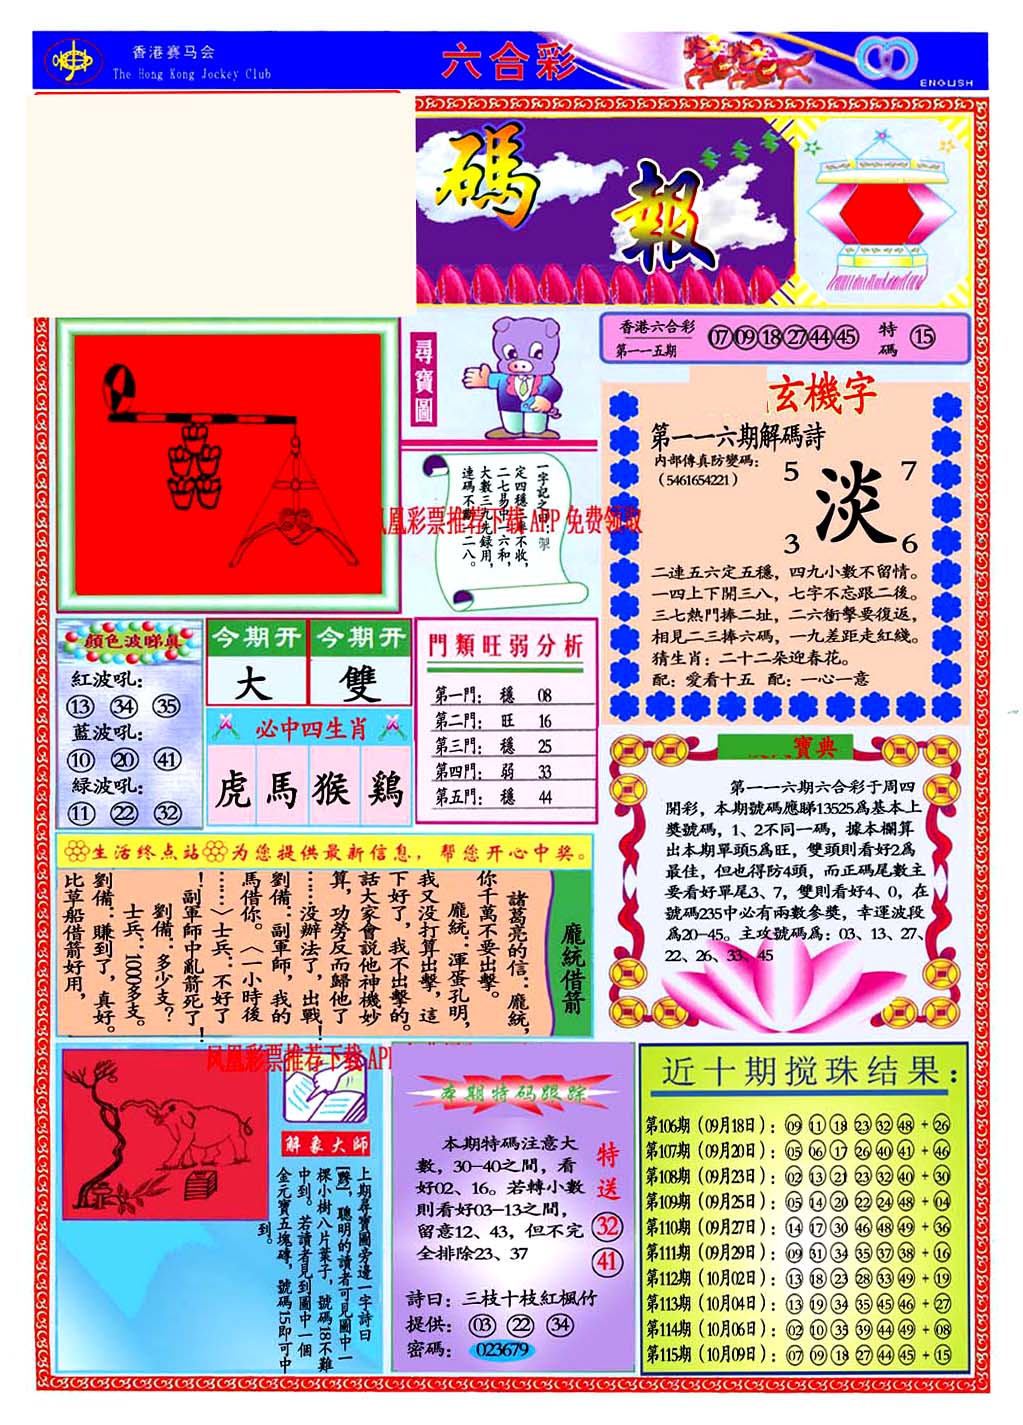 香港赛马会
The Hong Kong Jockey Club
六合彩
ENGLISH
碼報
尋寶圖
香港六合彩
第一一五期
07 09 18 27 44 45
特碼
15
玄機字
第一一六期解碼詩
内部傳真防變碼：
（5461654221）
5
7
淡
3
6
二連五六定五穩，四九小數不留情。
一四上下開三八，七字不忘跟二後。
三七熱門捧二址，二六衝擊要復返，
相見二三捧六碼，一九差距走紅綫。
猜生肖：二十二朵迎春花。
配：愛看十五 配：一心一意
一字記之曰
定四穩二準不收，
二七易中一六和，
大數三九先録用，
連碼不斷一二八。
凤凰彩票推荐下载 APP 免费领取
顔色波睇真
紅波吼：
13 34 35
藍波吼：
10 20 41
緑波吼：
11 22 32
今期开 今期开
大 雙
必中四生肖
虎 馬 猴 鷄
門類旺弱分析
第一門： 穩 08
第二門： 旺 16
第三門： 穩 25
第四門： 弱 33
第五門： 穩 44
寶典
第一一六期六合彩于周四
開彩，本期號碼應睇13525爲基本上
奬號碼，1、2不同一碼，據本欄算
出本期單頭5爲旺，雙頭則看好2爲
最佳，但也得防4頭，而正碼尾數主
要看好單尾3、7，雙則看好4、0，在
號碼235中必有兩數參奬，幸運波段
爲20-45。主攻號碼爲：03、13、27、
22、26、33、45
生活终点站 为您提供最新信息，帮您开心中奖。
龐統借箭
諸葛亮的信：龐統，
你千萬不要出擊。
龐統：渾蛋孔明，
我又没打算出擊，這
下好了，我不出擊的。
話大家會説他神機妙
算，功勞反而歸他了
……没辦法了，出戰！
劉備：副軍師，我的
馬借你。〈一小時後
……〉士兵：不好了
！副軍師中亂箭死了！
劉備：多少支？
士兵：1000多支。
劉備：賺到了，真好。
比草船借箭好用，
凤凰彩票推荐下载 APP
解象大師
上期尋寶圖旁邊一字詩曰
聰明的讀者可見圖中一
棵小樹八片葉子，號碼18不難
中到。若讀者見到圖中一個
金元寶五塊磚，號碼15即可中
到。
本期特码跟踪
本期特碼注意大
數，30-40之間，看
好02、16。若轉小數
則看好03-13之間，
留意12、43，但不完
全排除23、37
特送
32
41
詩曰：三枝十枝紅楓竹
提供： 03 22 34
密碼： 023679
近十期搅珠结果：
第106期（09月18日）： 09 11 18 23 32 48 + 26
第107期（09月20日）： 05 06 17 26 40 41 + 46
第108期（09月23日）： 02 13 21 23 32 40 + 30
第109期（09月25日）： 05 14 20 22 24 48 + 04
第110期（09月27日）： 14 17 30 46 48 49 + 36
第111期（09月29日）： 09 31 34 35 37 38 + 16
第112期（10月02日）： 13 18 23 28 33 49 + 19
第113期（10月04日）： 13 19 34 35 45 46 + 27
第114期（10月06日）： 02 10 35 39 44 49 + 08
第115期（10月09日）： 07 09 18 27 44 45 + 15